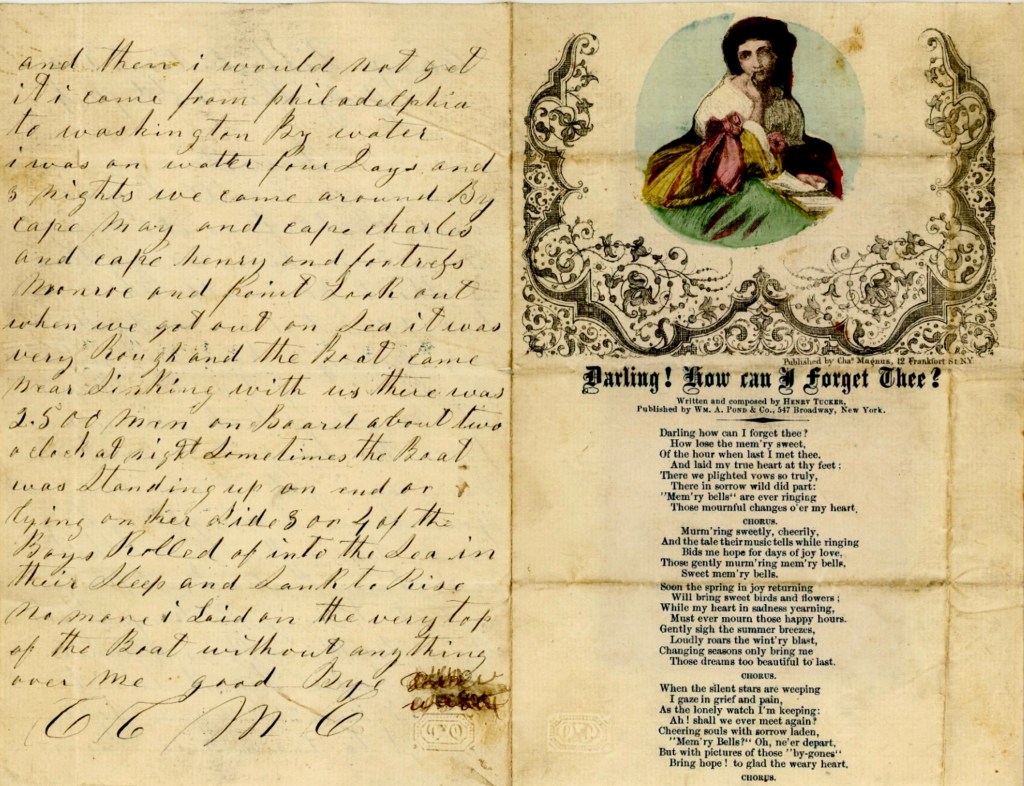 and then i would not get
it i come from philadelphia
to washington By water
i was on watter four Days and
3 nights we come around By
cape May and cape charles
and cape henry and fortress
Monroe and point Look out
when we got out on Sea it was
very Rough and the Boat came
near Sinking with us there was
2.500 men on Board about two
oclock at night Sometimes the Boat
was Standing up on end or
lying on her Side 3 or 4 of the
Boys Rolled of into the Sea in
their Sleep and Sank to Rise
no more i Laid on the very top
of the Boat without anything
over me good Bye
Published by Chas Magnus, 12 Frankfort St. N.Y.
Darling! How can I Forget Thee?
Written and composed by HENRY TUCKER,
Published by WM. A. POND & Co., 547 Broadway, New York.
Darling how can I forget thee?
How lose the mem'ry sweet,
Of the hour when last I met thee,
And laid my true heart at thy feet;
There we plighted vows so truly,
There in sorrow wild did part:
"Mem'ry bells" are ever ringing
Those mournful changes o'er my heart,
CHORUS.
Murm'ring sweetly, cheerily,
And the tale their music tells while ringing
Bids me hope for days of joy love,
Those gently murm'ring mem'ry bells,
Sweet mem'ry bells.
Soon the spring in joy returning
Will bring sweet birds and flowers;
While my heart in sadness yearning,
Must ever mourn those happy hours.
Gently sigh the summer breezes,
Loudly roars the wint'ry blast,
Changing seasons only bring me
Those dreams too beautiful to last.
CHORUS.
When the silent stars are weeping
I gaze in grief and pain,
As the lonely watch I'm keeping:
Ah! shall we ever meet again?
Cheering souls with sorrow laden,
"Mem'ry Bells?" Oh, ne'er depart,
But with pictures of those "by-gones"
Bring hope! to glad the weary heart.
CHORUS.